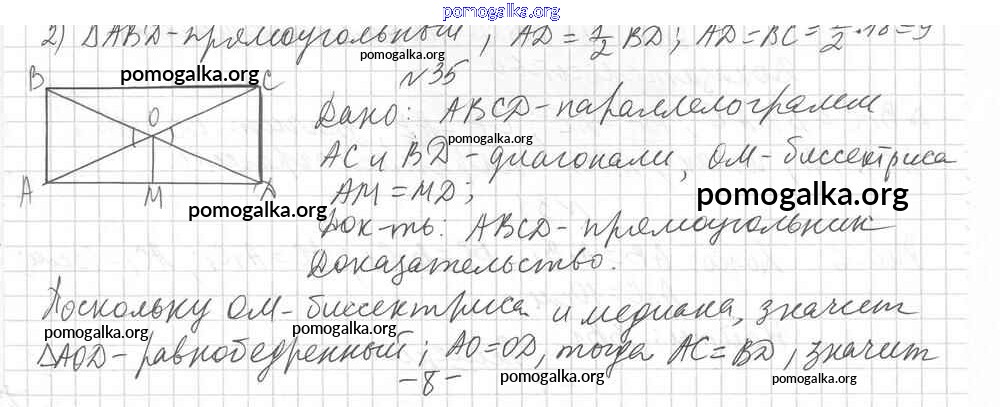 pomogalka.org
2) ΔABD - прямоугольный ; AD = 1/2 BD ; AD = BC = 1/2 · 18 = 9
pomogalka.org
№35
B C
pomogalka.org
O
Дано: ABCD - параллелограмм
pomogalka.org
AC и BD - диагонали, OM - биссектриса
A M D
AM = MD;
pomogalka.org
pomogalka.org
Док-ть: ABCD - прямоугольник
Доказательство.
Поскольку OM - биссектриса и медиана, значит
pomogalka.org pomogalka.org pomogalka.org
ΔAOD - равнобедренный ; AO = OD, тогда AC = BD, значит
- 8 -
pomogalka.org pomogalka.org